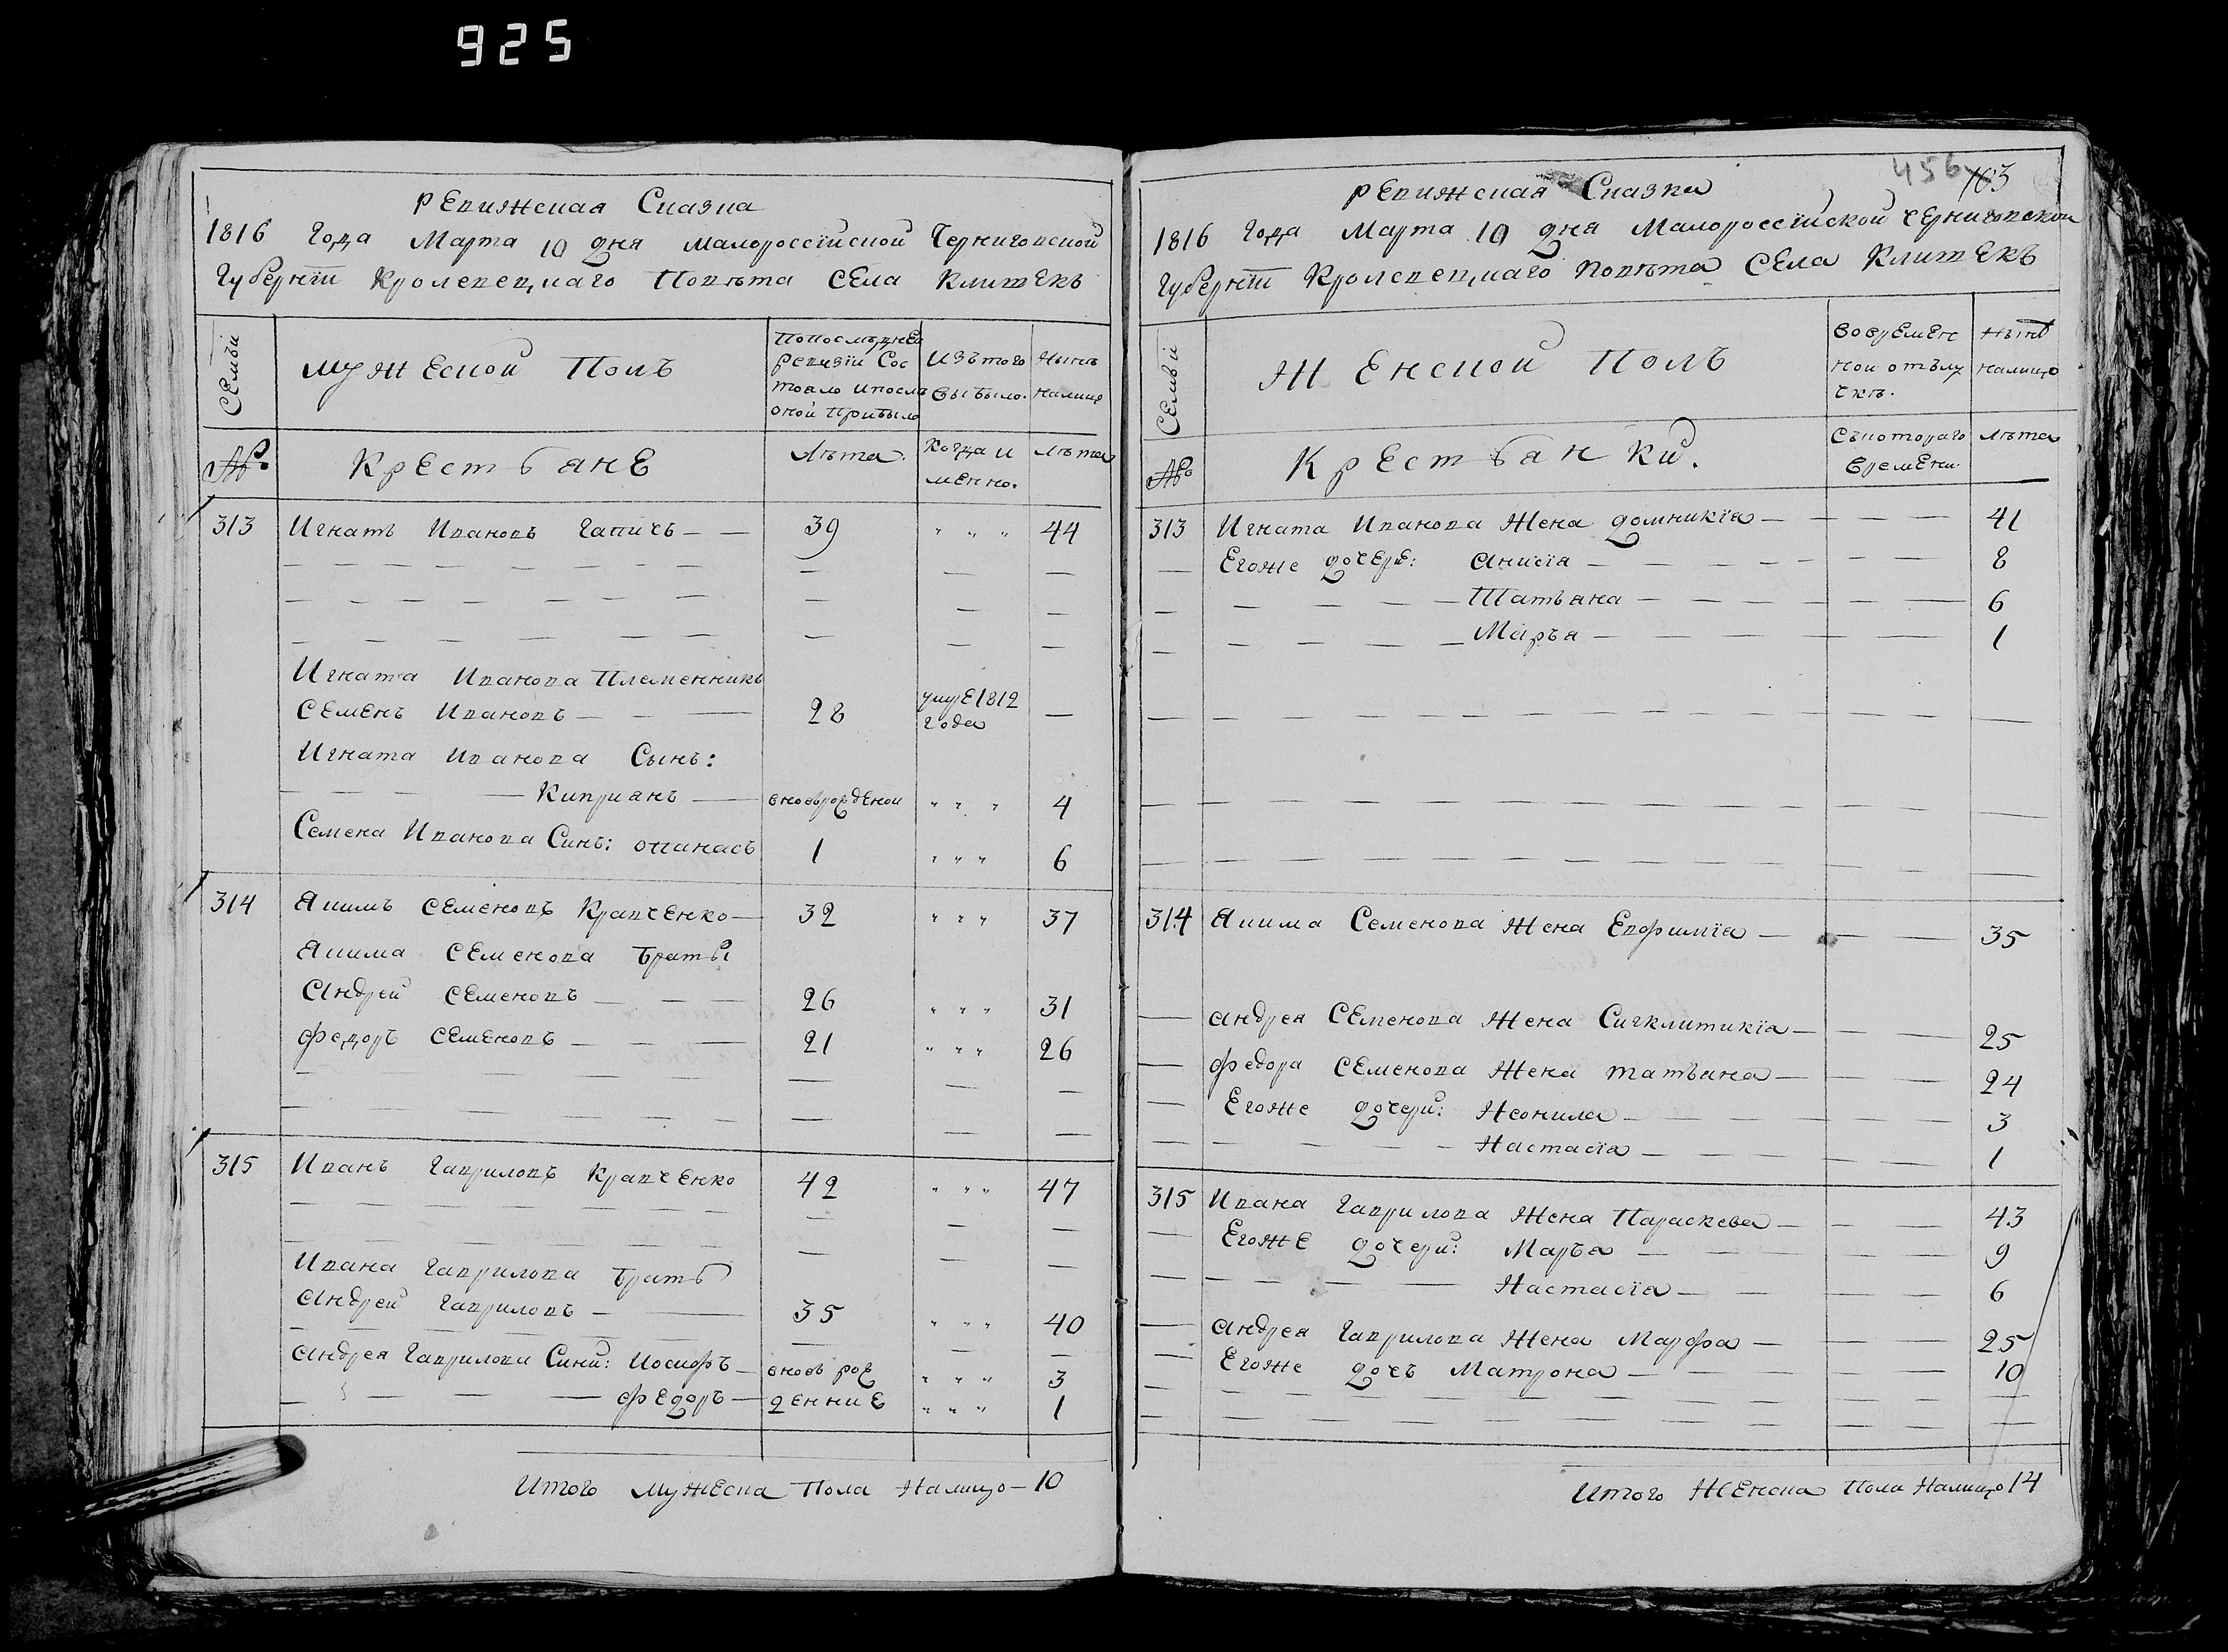 925
РЕвижская Сказка
1816 Года Марта 10 дня Малороссїйской Черниговской
Губернїи Кролевецкаго Повѣта Села Клишекъ
Семьи
мужеской Полъ
Попослѣдней ревизїи Состояло ипослѣ оной прибыло
Изътого выбыло.
Нынѣ налицо
№.
Крестьяне
Лѣта.
Когда имѣнно.
Лѣта
313 Игнатъ Ивановъ Гапичъ — — 39 " " " 44
Игната Иванова Племенникъ
Семенъ Ивановъ — — — 28 умре 1812 года —
Игната Иванова Сынъ:
Киприанъ — вновьрожденой " " " 4
Семена Иванова Синъ: опанасъ 1 " " " 6
314 Якимъ Семеновъ Кравченко — 32 " " " 37
Якима Семенова Братья
Андрей Семеновъ — — — 26 " " " 31
Федоръ Семеновъ — — — 21 " " " 26
315 Иванъ Гавриловъ Кравченко 42 " " " 47
Ивана Гаврилова Братъ
Андрей Гавриловъ — — 35 " " " 40
Андрея Гаврилова Сини: Иосифъ — вновь рож " " " 3
— — — Федоръ — денние " " " 1
Итого мужеска Пола Налицо — 10
456
103
РЕвижская Сказка
1816 Года Марта 10 дня Малороссїйской Черниговской
Губернїи Кролевецкаго Повѣта Села Клишекъ
Семьи
Женской Полъ
Вовременной отълучкѣ.
Нынѣ налицо
№
Крестьанки.
Съкотораго времени.
Лѣта
313 Игната Иванова Жена Домникїа — — — — 41
— Егоже дочери: Анисїя — — — — 8
— — — — Татьяна — — — — 6
— — — — Марья — — — — 1
314 Якима Семенова Жена Евфимїа — — — 35
— Андрея Семенова Жена Сигклитикїа — — — 25
— Федора Семенова Жена татьяна — — — 24
— Егоже дочери: Неонила — — — 3
— — — — Настасїа — — — 1
315 Ивана Гаврилова Жена Параскева — — — 43
— Егоже дочери: Марьа — — — 9
— — — — Настасїа — — — 6
— Андрея Гаврилова Жена Марфа — — — 25
— Егоже дочь Матрона — — — 10
Итого Женска Пола Налицо 14